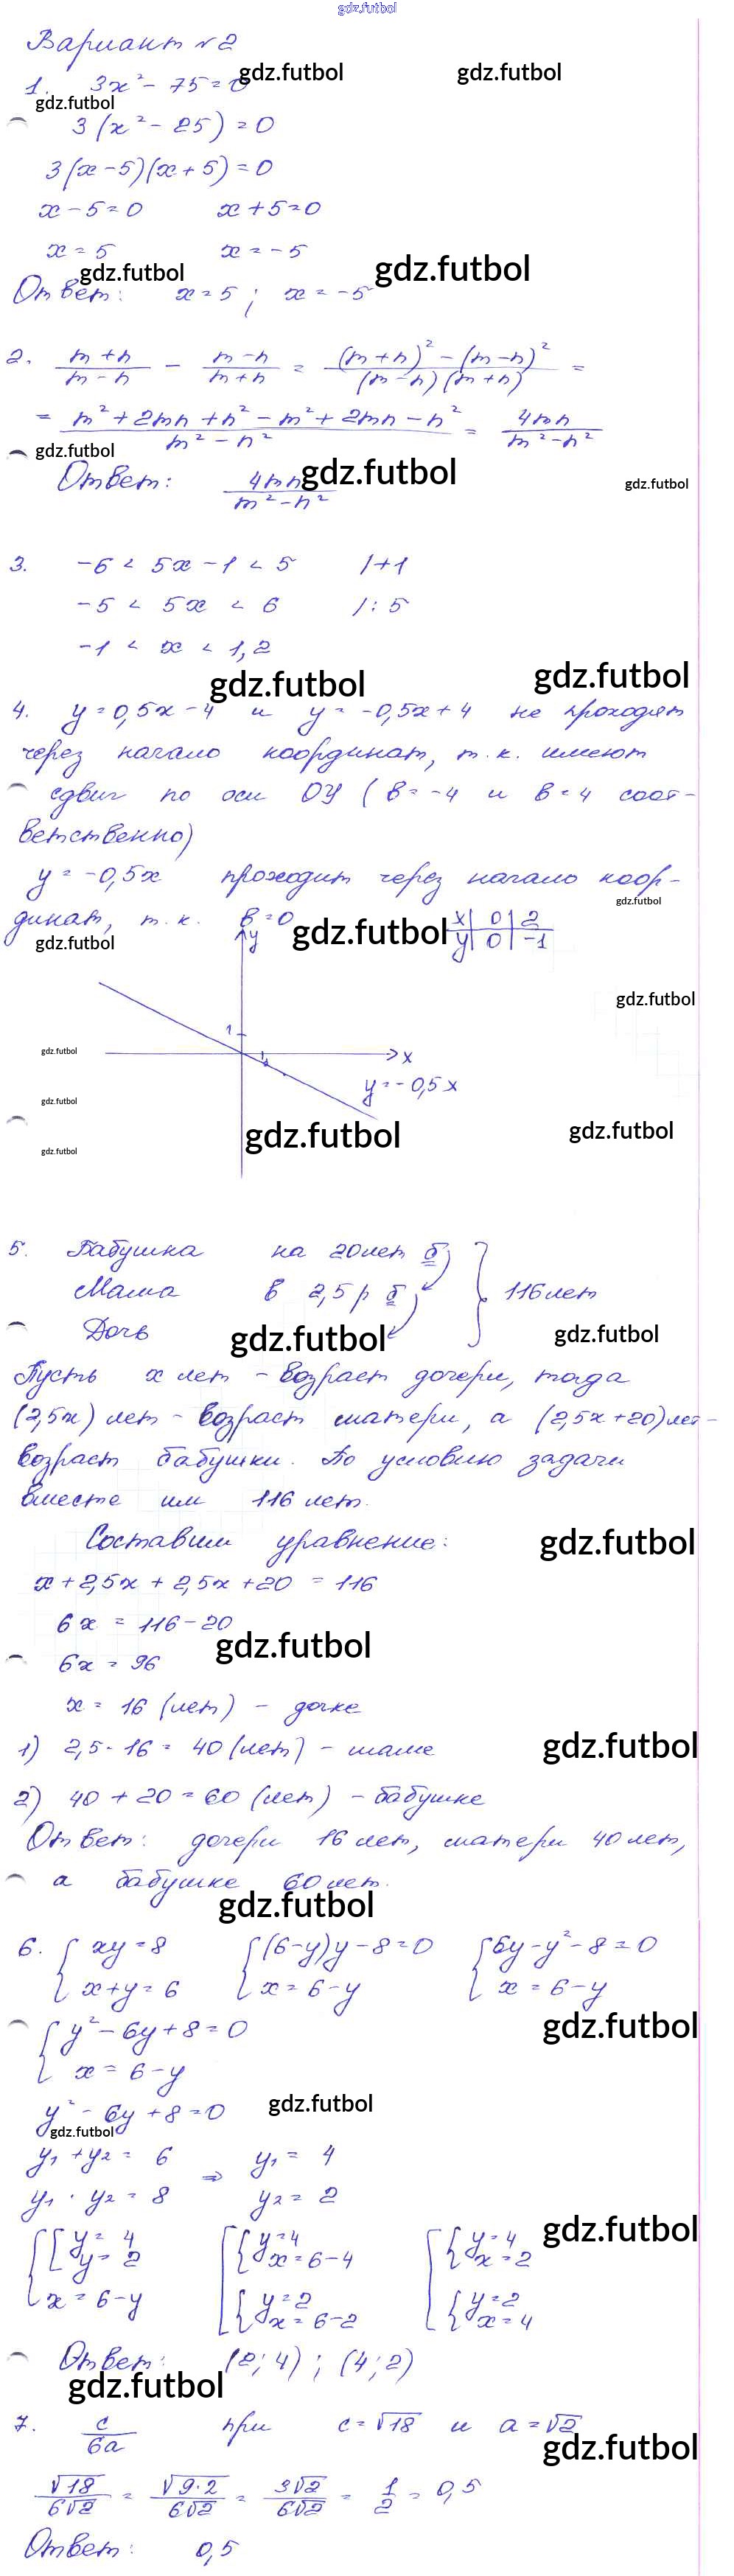 gdz.futbol
Вариант №2
1. 3x² - 75 = 0
gdz.futbol gdz.futbol
gdz.futbol
3(x² - 25) = 0
3(x - 5)(x + 5) = 0
x - 5 = 0 x + 5 = 0
x = 5 x = -5
gdz.futbol gdz.futbol
Ответ: x = 5; x = -5
2. (m+n)/(m-n) - (m-n)/(m+n) = ((m+n)² - (m-n)²)/((m-n)(m+n)) =
= (m² + 2mn + n² - m² + 2mn - n²)/(m² - n²) = 4mn/(m² - n²)
gdz.futbol gdz.futbol gdz.futbol
Ответ: 4mn/(m² - n²)
3. -6 < 5x - 1 < 5 /+1
-5 < 5x < 6 /: 5
-1 < x < 1,2
gdz.futbol gdz.futbol
4. y = 0,5x - 4 и y = -0,5x + 4 не проходят
через начало координат, т.к. имеют
сдвиг по оси OY (в = -4 и в = 4 соот-
ветственно)
y = -0,5x проходит через начало коор-
gdz.futbol
динат, т.к. в = 0
x | 0 | 2
y | 0 | -1
gdz.futbol gdz.futbol
y
gdz.futbol
1
gdz.futbol
1 x
y = -0,5x
gdz.futbol
gdz.futbol gdz.futbol
gdz.futbol
5. Бабушка на 20 лет б
Мама в 2,5 р б 116 лет
Дочь
gdz.futbol gdz.futbol
Пусть x лет - возраст дочери, тогда
(2,5x) лет - возраст матери, а (2,5x+20) лет -
возраст бабушки. По условию задачи
вместе им 116 лет.
Составим уравнение:
gdz.futbol
x + 2,5x + 2,5x + 20 = 116
6x = 116 - 20
gdz.futbol
6x = 96
x = 16 (лет) - дочке
1) 2,5 · 16 = 40 (лет) - маме
gdz.futbol
2) 40 + 20 = 60 (лет) - бабушке
Ответ: дочери 16 лет, матери 40 лет,
а бабушке 60 лет.
gdz.futbol
6. { xy = 8 { (6-y)y - 8 = 0 { 6y - y² - 8 = 0
{ x + y = 6 { x = 6 - y { x = 6 - y
gdz.futbol
{ y² - 6y + 8 = 0
{ x = 6 - y
gdz.futbol
y² - 6y + 8 = 0
gdz.futbol
y₁ + y₂ = 6 ⇒ y₁ = 4
y₁ · y₂ = 8 y₂ = 2
gdz.futbol
{ [ y = 4 [ { y = 4 [ { y = 4
y = 2 x = 6 - 4 x = 2
x = 6 - y { y = 2 { y = 2
x = 6 - 2 x = 4
Ответ: (2; 4); (4; 2)
gdz.futbol
7. c/6a при c = √18 и a = √2
gdz.futbol
√18/6√2 = √9·2/6√2 = 3√2/6√2 = 1/2 = 0,5
Ответ: 0,5